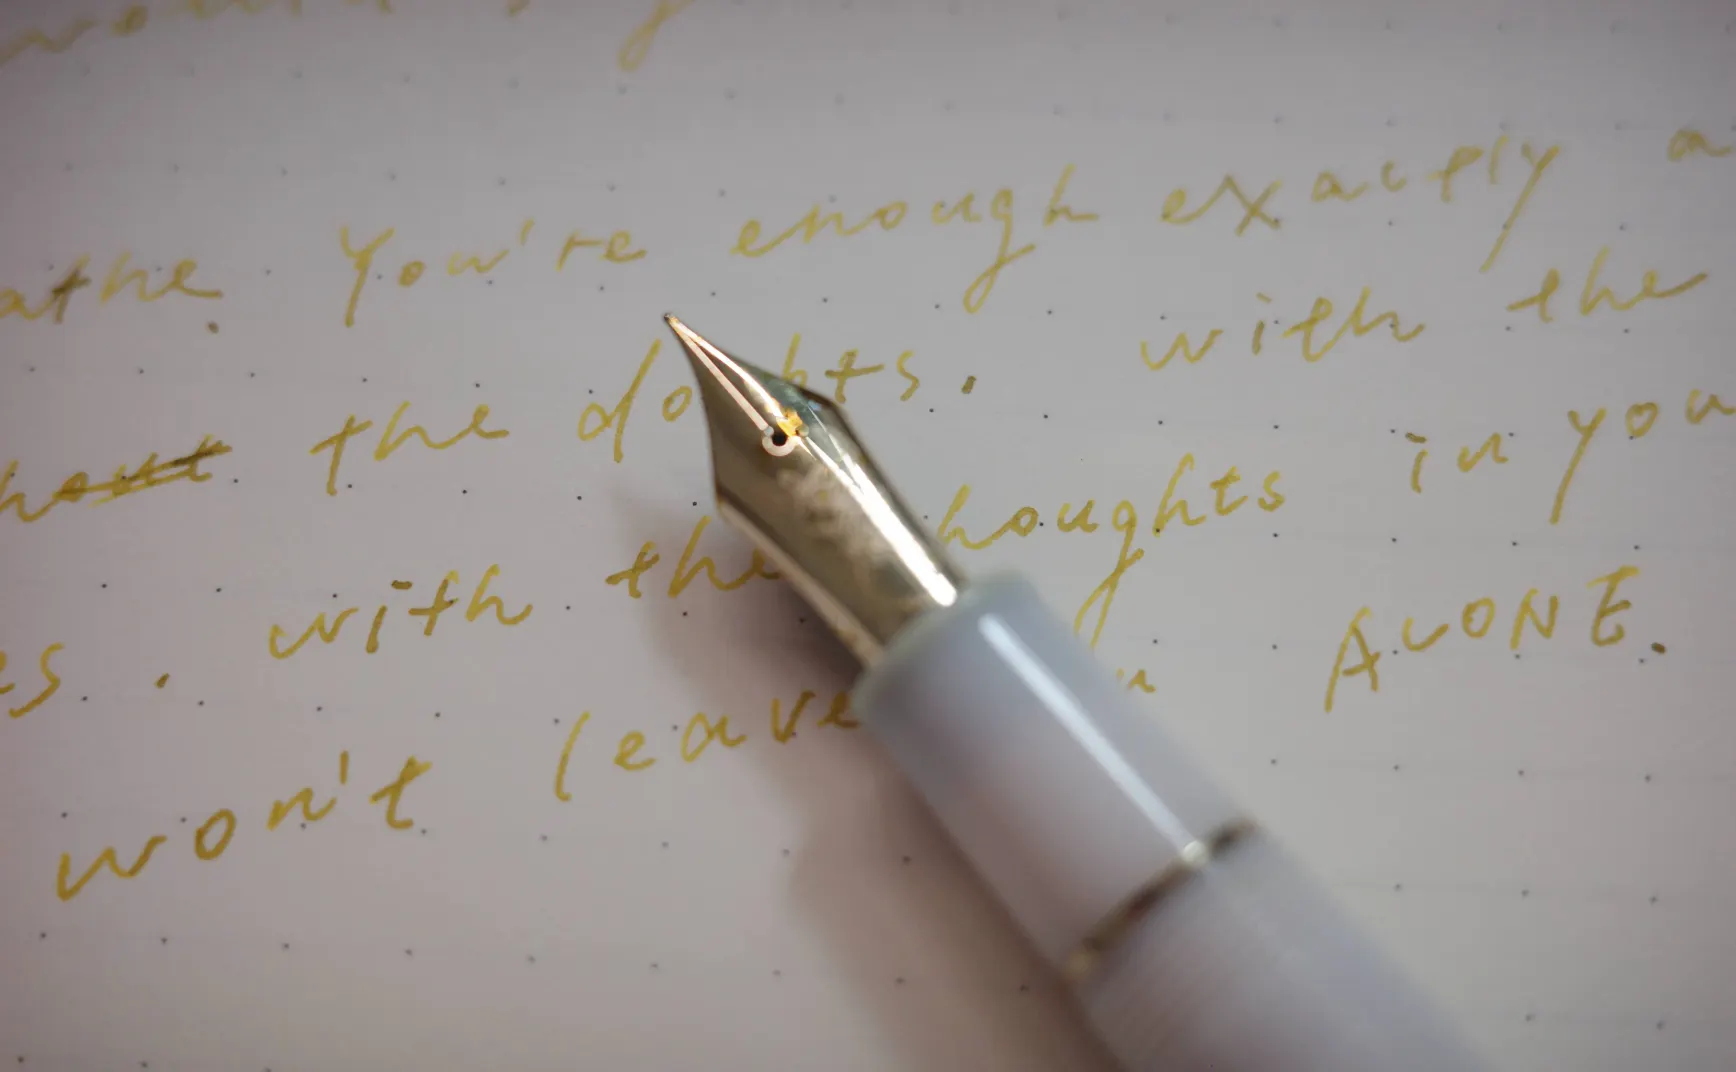 athe. You're enough exactly a
the doubts. with the
with the thoughts in you
es. won't leave ALONE.